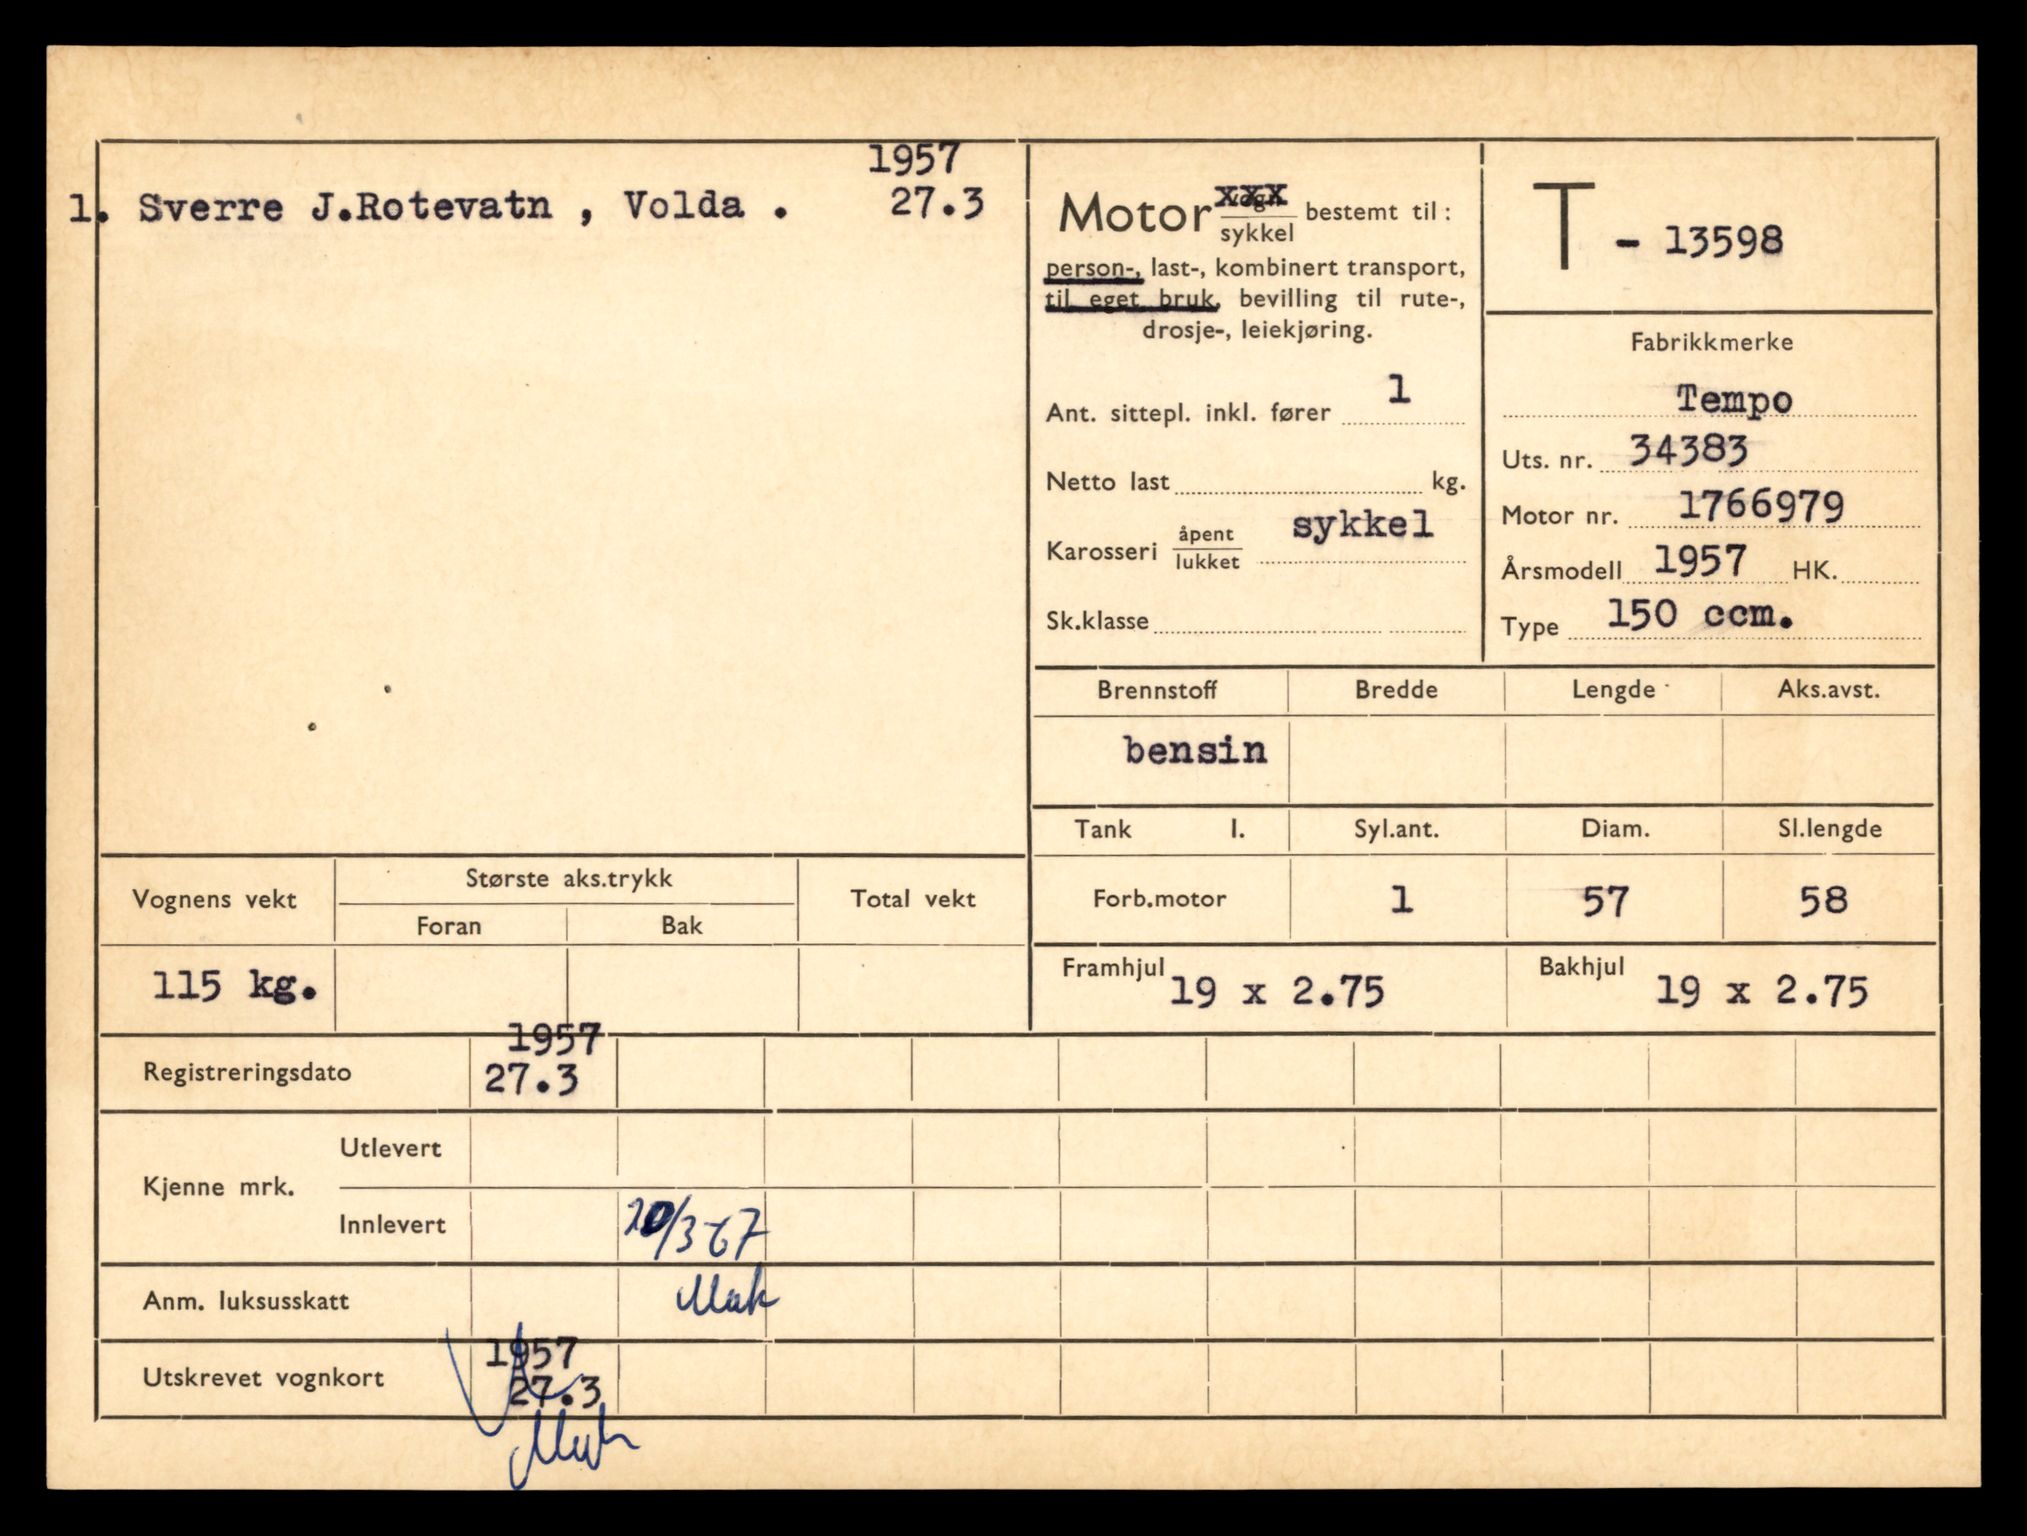 1957
1. Sverre J.Rotevatn , Volda . 27.3
Motor xxx
sykkel bestemt til:
person-, last-, kombinert transport,
til eget bruk, bevilling til rute-,
drosje-, leiekjøring.
Ant. sittepl. inkl. fører 1
Netto last kg.
Karosseri åpent
lukket sykkel
Sk.klasse
T - 13598
Fabrikkmerke
Tempo
Uts. nr. 34383
Motor nr. 1766979
Årsmodell 1957 HK.
Type 150 ccm.
Brennstoff Bredde Lengde Aks.avst.
bensin
Tank l. Syl.ant. Diam. Sl.lengde
Forb.motor 1 57 58
Framhjul 19 x 2.75 Bakhjul 19 x 2.75
Vognens vekt Største aks.trykk Total vekt
Foran Bak
115 kg.
1957
Registreringsdato 27.3
Kjenne mrk. Utlevert
Innlevert /3 67
Anm. luksusskatt
1957
Utskrevet vognkort 27.3